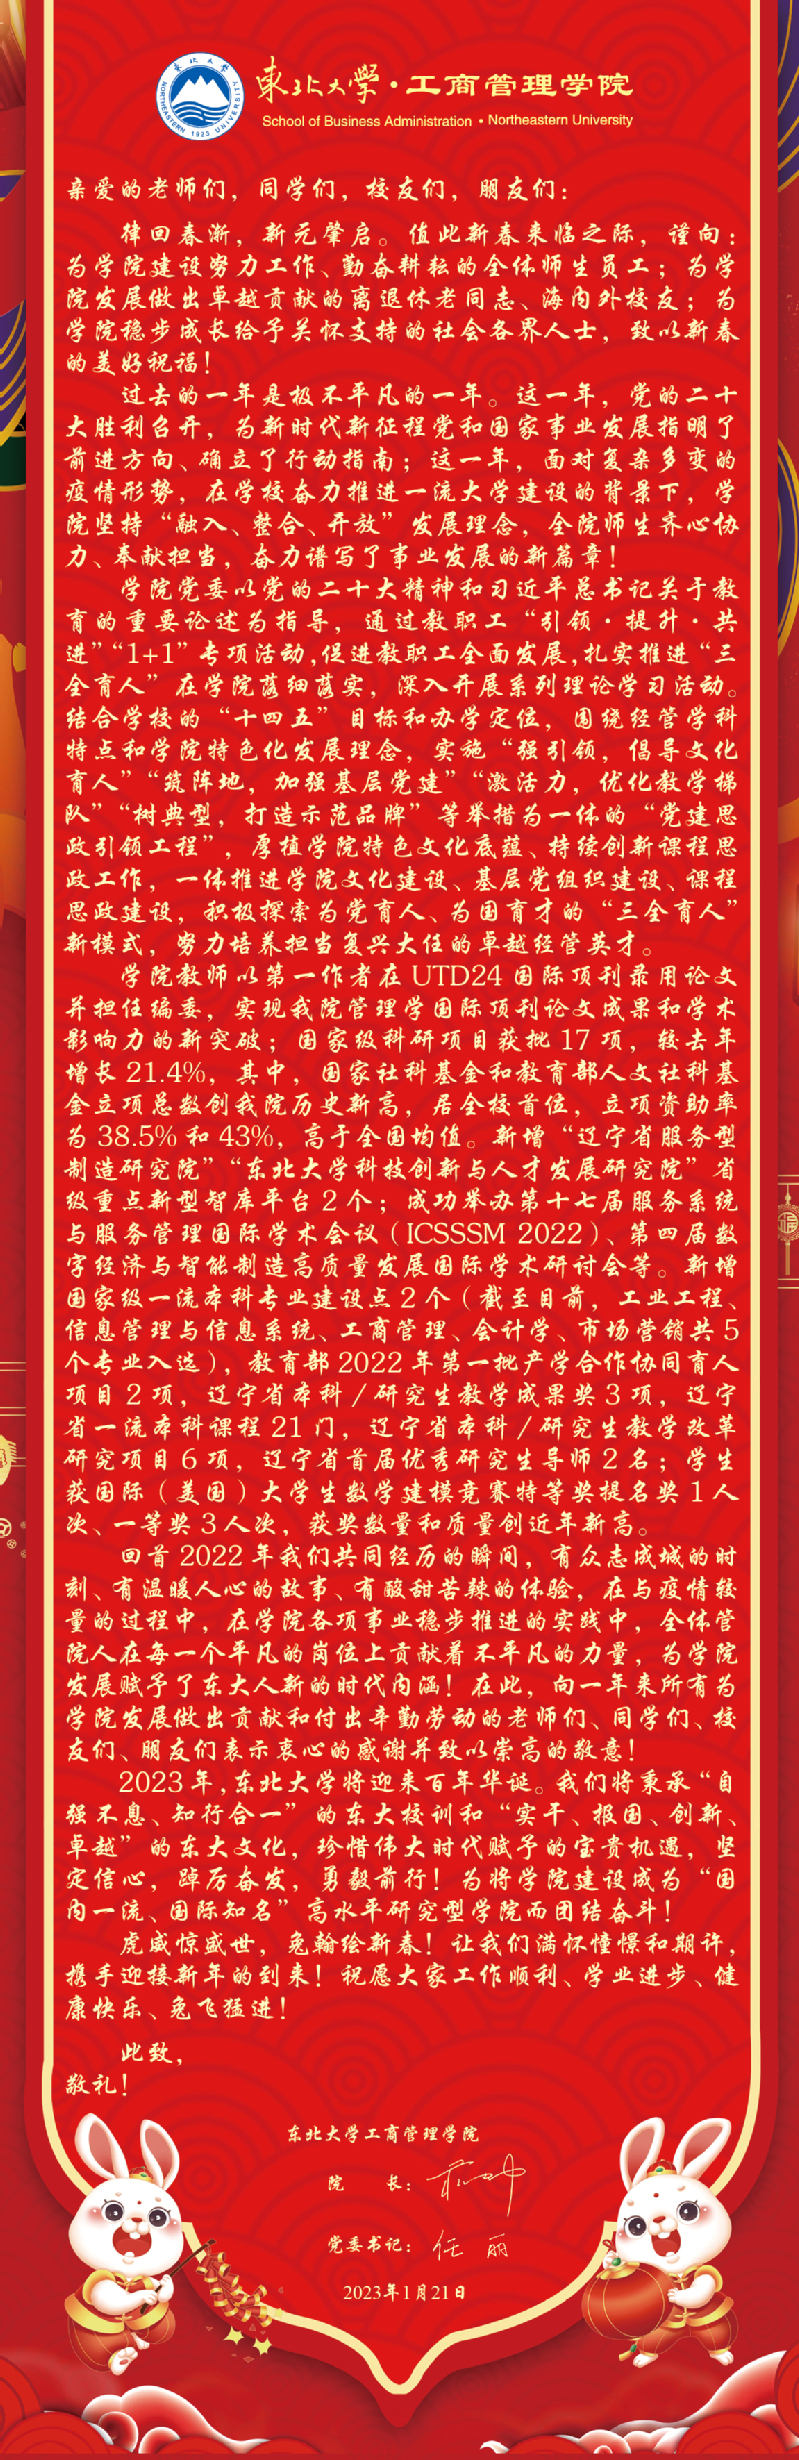 東北大學·工商管理学院
School of Business Administration · Northeastern University
NORTHEASTERN 1923 UNIVERSITY
亲爱的老师们，同学们，校友们，朋友们：
律回春渐，新元肇启。值此新春来临之际，谨向：
为学院建设努力工作、勤奋耕耘的全体师生员工；为学
院发展做出卓越贡献的离退休老同志、海内外校友；为
学院稳步成长给予关怀支持的社会各界人士，致以新春
的美好祝福！
过去的一年是极不平凡的一年。这一年，党的二十
大胜利召开，为新时代新征程党和国家事业发展指明了
前进方向、确立了行动指南；这一年，面对复杂多变的
疫情形势，在学校奋力推进一流大学建设的背景下，学
院坚持“融入、整合、开放”发展理念，全院师生齐心协
力、奉献担当，奋力谱写了事业发展的新篇章！
学院党委以党的二十大精神和习近平总书记关于教
育的重要论述为指导，通过教职工“引领·提升·共
进”“1+1”专项活动,促进教职工全面发展,扎实推进“三
全育人”在学院落细落实，深入开展系列理论学习活动。
结合学校的“十四五”目标和办学定位，围绕经管学科
特点和学院特色化发展理念，实施“强引领，倡导文化
育人”“筑阵地，加强基层党建”“激活力，优化教学梯
队”“树典型，打造示范品牌”等举措为一体的“党建思
政引领工程”，厚植学院特色文化底蕴、持续创新课程思
政工作，一体推进学院文化建设、基层党组织建设、课程
思政建设，积极探索为党育人、为国育才的“三全育人”
新模式，努力培养担当复兴大任的卓越经管英才。
学院教师以第一作者在 UTD24 国际顶刊录用论文
并担任编委，实现我院管理学国际顶刊论文成果和学术
影响力的新突破；国家级科研项目获批 17 项，较去年
增长 21.4%，其中，国家社科基金和教育部人文社科基
金立项总数创我院历史新高，居全校首位，立项资助率
为 38.5% 和 43%，高于全国均值。新增“辽宁省服务型
制造研究院”“东北大学科技创新与人才发展研究院”省
级重点新型智库平台 2 个；成功举办第十七届服务系统
与服务管理国际学术会议（ICSSSM 2022）、第四届数
字经济与智能制造高质量发展国际学术研讨会等。新增
国家级一流本科专业建设点 2 个（截至目前，工业工程、
信息管理与信息系统、工商管理、会计学、市场营销共 5
个专业入选），教育部 2022 年第一批产学合作协同育人
项目 2 项，辽宁省本科／研究生教学成果奖 3 项，辽宁
省一流本科课程 21 门，辽宁省本科／研究生教学改革
研究项目 6 项，辽宁省首届优秀研究生导师 2 名；学生
获国际（美国）大学生数学建模竞赛特等奖提名奖 1 人
次、一等奖 3 人次，获奖数量和质量创近年新高。
回首 2022 年我们共同经历的瞬间，有众志成城的时
刻、有温暖人心的故事、有酸甜苦辣的体验，在与疫情较
量的过程中，在学院各项事业稳步推进的实践中，全体管
院人在每一个平凡的岗位上贡献着不平凡的力量，为学院
发展赋予了东大人新的时代内涵！在此，向一年来所有为
学院发展做出贡献和付出辛勤劳动的老师们、同学们、校
友们、朋友们表示衷心的感谢并致以崇高的敬意！
2023 年,东北大学将迎来百年华诞。我们将秉承“自
强不息、知行合一”的东大校训和“实干、报国、创新、
卓越”的东大文化，珍惜伟大时代赋予的宝贵机遇，坚
定信心，踔厉奋发，勇毅前行！为将学院建设成为“国
内一流、国际知名”高水平研究型学院而团结奋斗！
虎威惊盛世，兔翰绘新春！让我们满怀憧憬和期许，
携手迎接新年的到来！祝愿大家工作顺利、学业进步、健
康快乐、兔飞猛进！
此致，
敬礼！
东北大学工商管理学院
院　　长：
党委书记：任丽
2023年1月21日